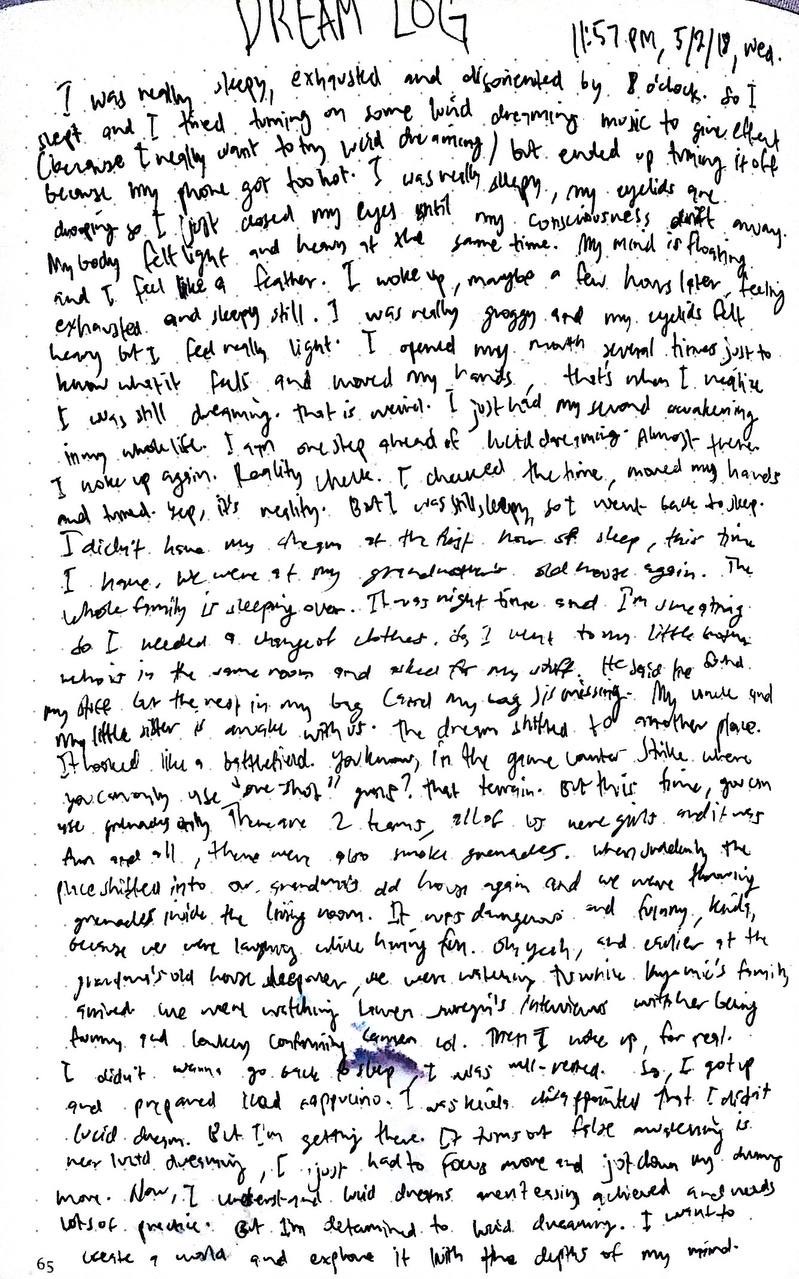 DREAM LOG
11:57 PM, 5/2/18, Wed.
I was really sleepy, exhausted and disoriented by 8 o'clock. So I
slept and I tried turning on some lucid dreaming music to give effect
(because I really want to try lucid dreaming) but ended up turning it off
because my phone got too hot. I was really sleepy, my eyelids are
drooping so I just closed my eyes until my consciousness drift away.
My body felt light and heavy at the same time. My mind is floating
and I feel like a feather. I woke up, maybe a few hours later, feeling
exhausted and sleepy still. I was really groggy and my eyelids felt
heavy but I feel really light. I opened my mouth several times just to
know what it feels and moved my hands, that's when I realize
I was still dreaming. That is weird. I just had my second awakening
in my whole life. I am one step ahead of lucid dreaming. Almost there.
I woke up again. Reality check. I checked the time, moved my hands
and turned. Yep, it's reality. But I was still sleepy, so I went back to sleep.
I didn't have my dream at the first hour of sleep, this time
I have. We were at my grandmother's old house again. The
whole family is sleeping over. It was night time and I'm sweating
so I needed a change of clothes. So I went to my little brother
who is in the same room and asked for my stuff. He said he
my stuff but the rest in my bag (and my bag) is missing. My uncle and
my little sister is awake with us. The dream shifted to another place.
It looked like a battlefield. You know, in the game Counter Strike where
you can only use "one-shot" guns? That terrain. But this time, you can
use grenades only. There are 2 teams, all of us were girls and it was
fun and all, there were also smoke grenades. When suddenly the
place shifted into our grandma's old house again and we were throwing
grenades inside the living room. It was dangerous and funny, kinda,
because we were laughing while having fun. Oh yeah, and earlier at the
grandma's old house sleepover, we were watching TV while family
arrived. We were watching Lauren Jauregui's interviews with her being
funny and lowkey confirming Camren lol. Then I woke up, for real.
I didn't wanna go back to sleep, I was well-rested. So, I got up
and prepared iced cappucino. I was kinda disappointed that I didn't
lucid dream. But I'm getting there. It turns out false awakening is
near lucid dreaming, I just had to focus more and jot down my dreams
more. Now, I understand lucid dreams aren't easily achieved and needs
lots of practice. But I'm determined to lucid dreaming. I want to
create a world and explore it with the depths of my mind.
65